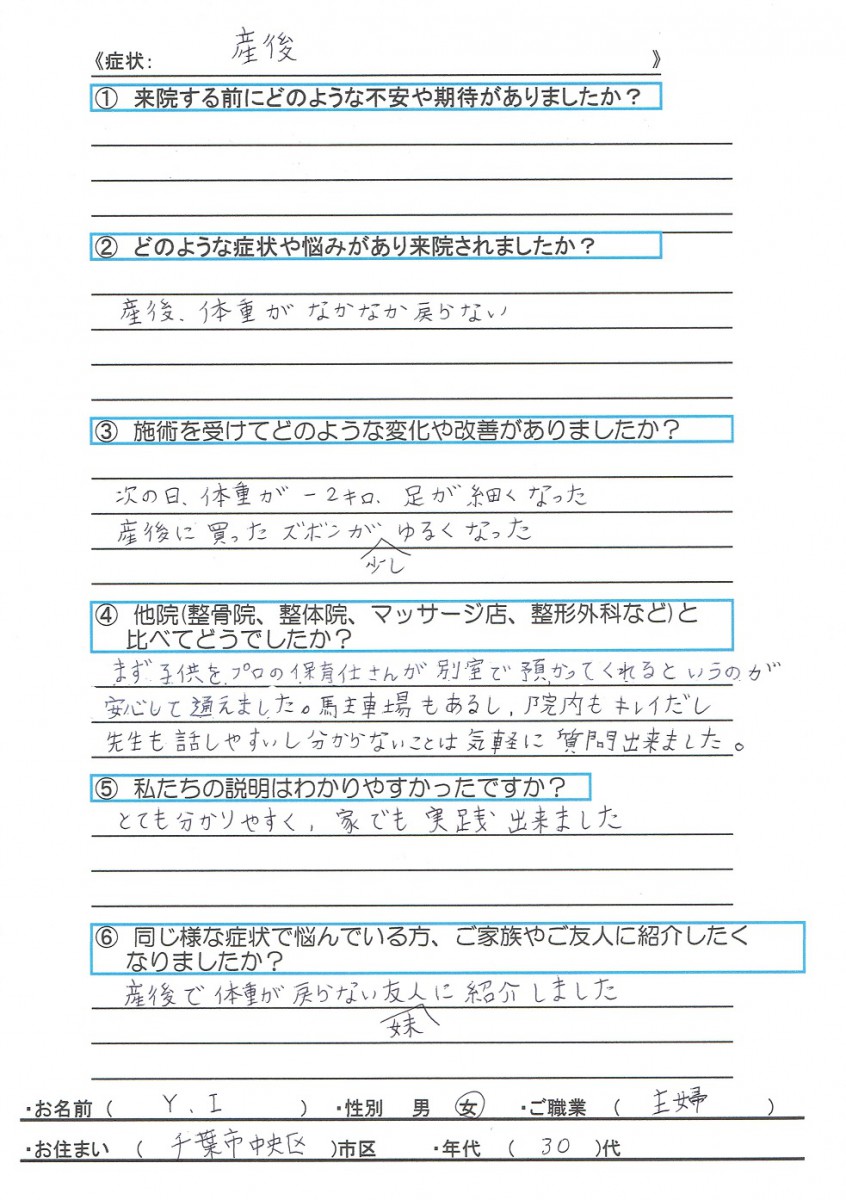 《症状: 産後 》
① 来院する前にどのような不安や期待がありましたか？
② どのような症状や悩みがあり来院されましたか？
産後、体重が なかなか戻らない
③ 施術を受けてどのような変化や改善がありましたか？
次の日、体重が −2キロ、足が細くなった
産後に買ったズボンが ゆるくなった
少し
④ 他院(整骨院、整体院、マッサージ店、整形外科など)と
比べてどうでしたか？
まず子供をプロの保育仕さんが別室で預かってくれるというのが
安心して通えました。駐車場もあるし、院内もキレイだし
先生も話しやすいし分からないことは気軽に質問出来ました。
⑤ 私たちの説明はわかりやすかったですか？
とても分かりやすく、家でも実践出来ました
⑥ 同じ様な症状で悩んでいる方、ご家族やご友人に紹介したく
なりましたか？
産後で体重が戻らない友人に紹介しました
妹
・お名前 ( Y.I ) ・性別 男 女 ・ご職業 ( 主婦 )
・お住まい ( 千葉市中央区 )市区 ・年代 ( 30 )代